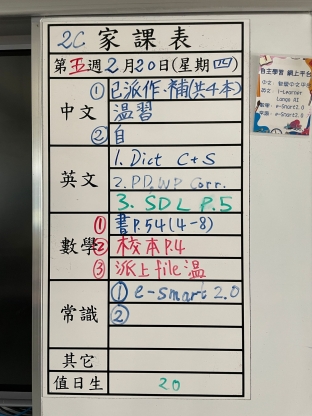 2C 家課表
第五週2月20日(星期四)
中文
① 已派作·補(共4本)
溫習
② 自
英文
1. Dict C+S
2. PD, WP Corr.
3. SDL P.5
數學
① 書P.54(4-8)
② 校本P.4
③ 派上file溫
常識
① e-smart 2.0
②
其它
值日生 20
自主學習 網上平台
i-Learner
e-Smart2.0
e-Smart2.0